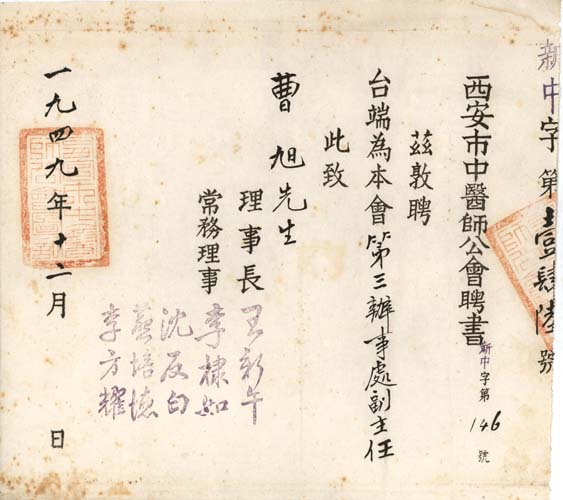 新中字第壹肆陸號
西安市中醫師公會聘書
新中字第146號
茲敦聘
台端為本會第三辦事處副主任
此致
曹旭先生
理事長 王新午
常務理事 李棣如
沈反白
李方耀
一九四九年十二月 日